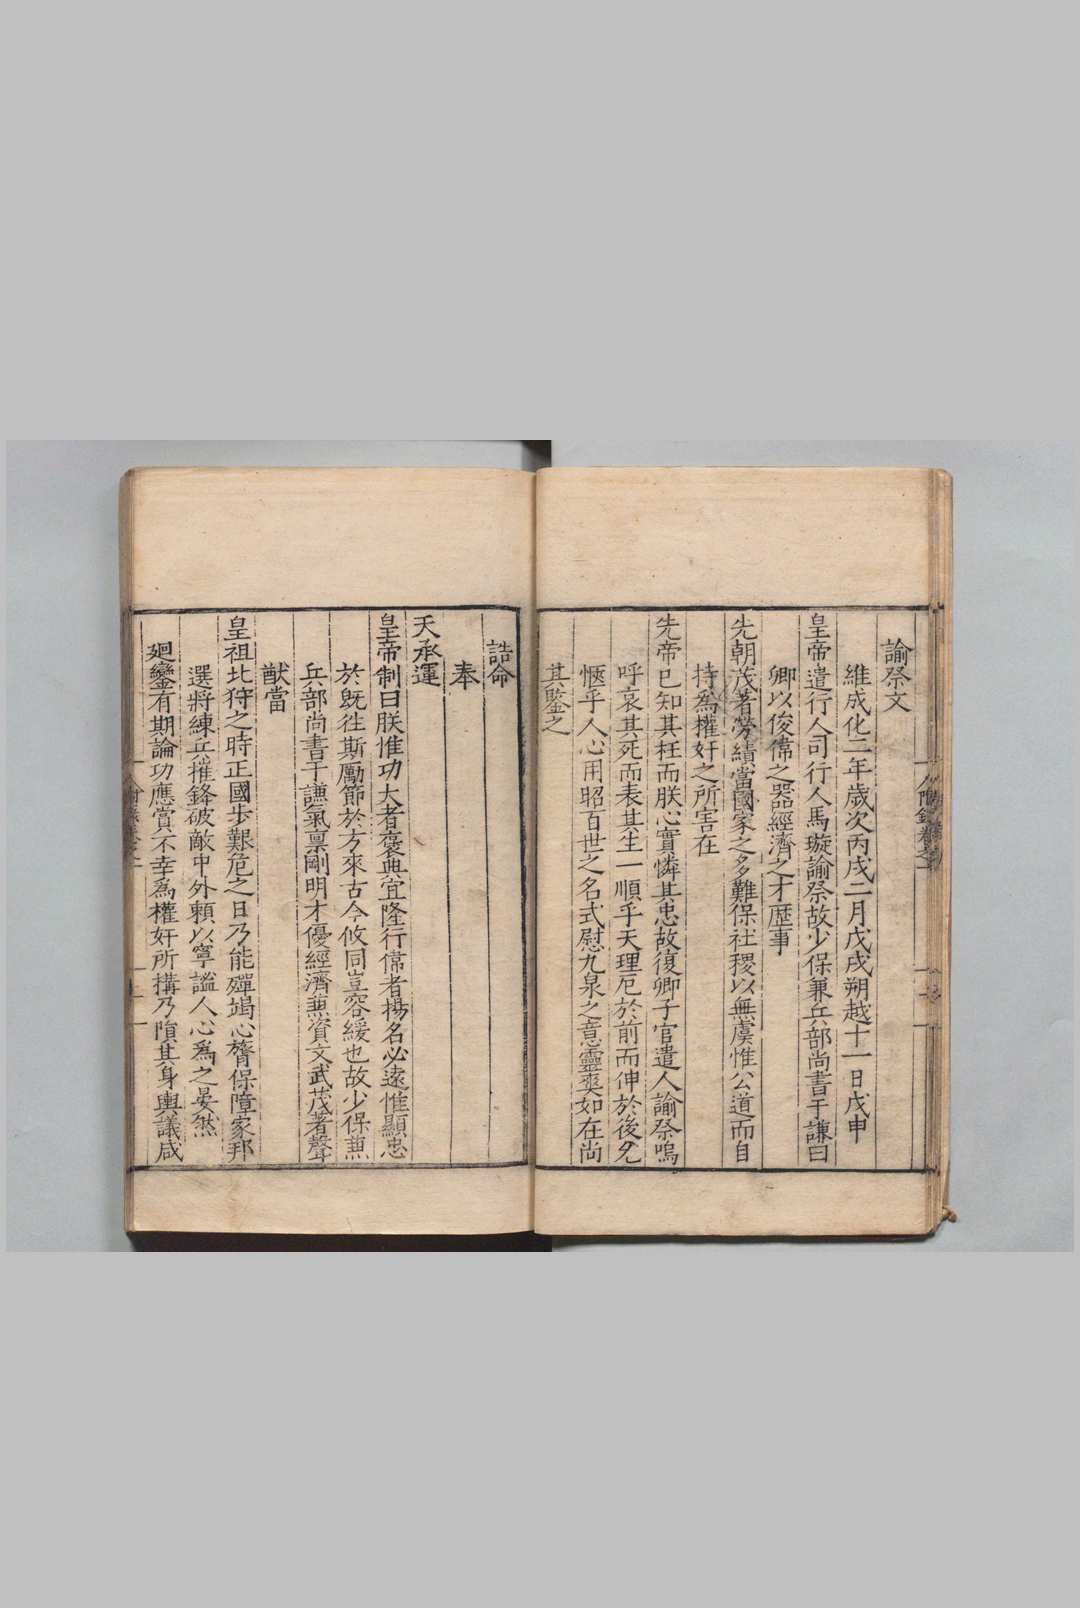 附錄卷之一
諭祭文
維成化二年歲次丙戌二月戊戌朔越十一日戊申
皇帝遣行人司行人馬璇諭祭故少保兼兵部尚書于謙曰
卿以俊偉之器經濟之才歷事
先朝茂著勞績當國家之多難保社稷以無虞惟公道而自
持為權奸之所害在
先帝已知其枉而朕心實憐其忠故復卿子官遣人諭祭嗚
呼哀其死而表其生一順乎天理厄於前而伸於後允
愜乎人心用昭百世之名式慰九泉之意靈爽如在尚
其鑒之
誥命
奉
天承運
皇帝制曰朕惟功大者褒典宜隆行偉者揚名必遠惟顯忠
於旣往斯勵節於方來古今攸同豈容緩也故少保蕪
兵部尚書于謙氣禀剛明才優經濟蕪資文武茂著聲
猷當
皇祖北狩之時正國步艱危之日乃能殫竭心膂保障家邦
選將練兵摧鋒破敵中外賴以寧謐人心為之晏然
廻鑾有期論功應賞不幸為權奸所搆乃隕其身輿議咸